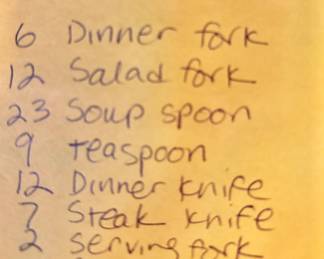 6 Dinner fork
12 Salad fork
23 Soup spoon
9 teaspoon
12 Dinner knife
7 Steak knife
2 Serving fork